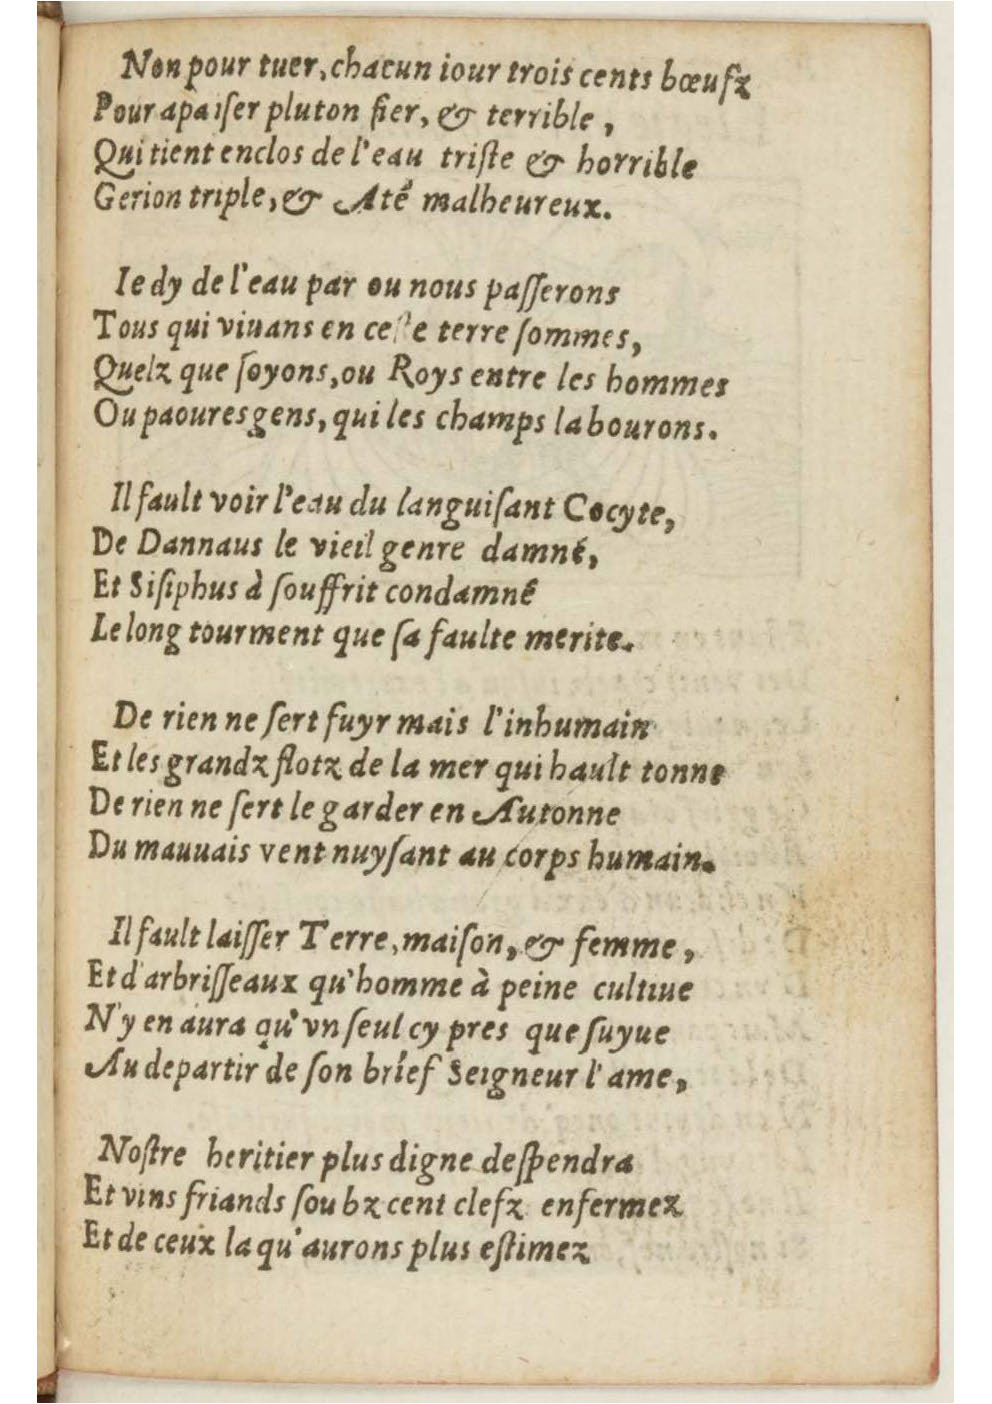 Non pour tuer, chacun iour trois cents bœufz
Pour apaiſer pluton fier, & terrible,
Qui tient enclos de l'eau triſte & horrible
Gerion triple, & Até malheureux.

Ie dy de l'eau par ou nous paſſerons
Tous qui viuans en ceſte terre ſommes,
Quelz que ſoyons, ou Roys entre les hommes
Ou paoures gens, qui les champs labourons.

Il fault voir l'eau du languiſant Cocyte,
De Dannaus le vieil genre damné,
Et Siſiphus à ſouffrit condamné
Le long tourment que ſa faulte merite.

De rien ne ſert fuyr mais l'inhumain
Et les grandz flotz de la mer qui hault tonne
De rien ne ſert le garder en Autonne
Du mauuais vent nuyſant au corps humain.

Il fault laiſſer Terre, maiſon, & femme,
Et d'arbriſſeaux qu'homme à peine cultiue
N'y en aura qu'vn ſeul cy pres que ſuyue
Au departir de ſon brief Seigneur l'ame,

Noſtre heritier plus digne deſpendra
Et vins friands ſoubz cent clefz enfermez
Et de ceux la qu'aurons plus eſtimez